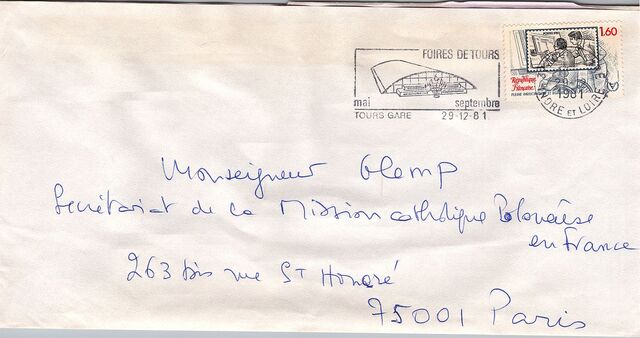 1.60
FOIRES DE TOURS
République
Française
mai septembre
TOURS GARE 29-12-81
1981
INDRE ET LOIRE
Monseigneur Glemp
Secrétariat de la Mission catholique Polonaise
en France
263 bis rue St Honoré
75001 Paris